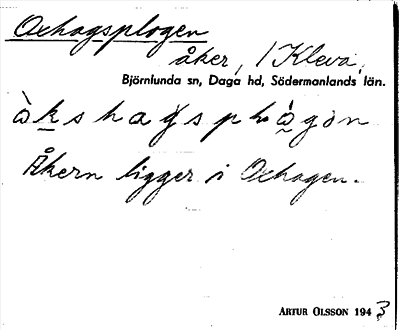 Oxhagsplogen
åker, /Kleva,
Björnlunda sn, Daga hd, Södermanlands län.
Åkern ligger i Oxhagen.
ARTUR OLSSON 1943